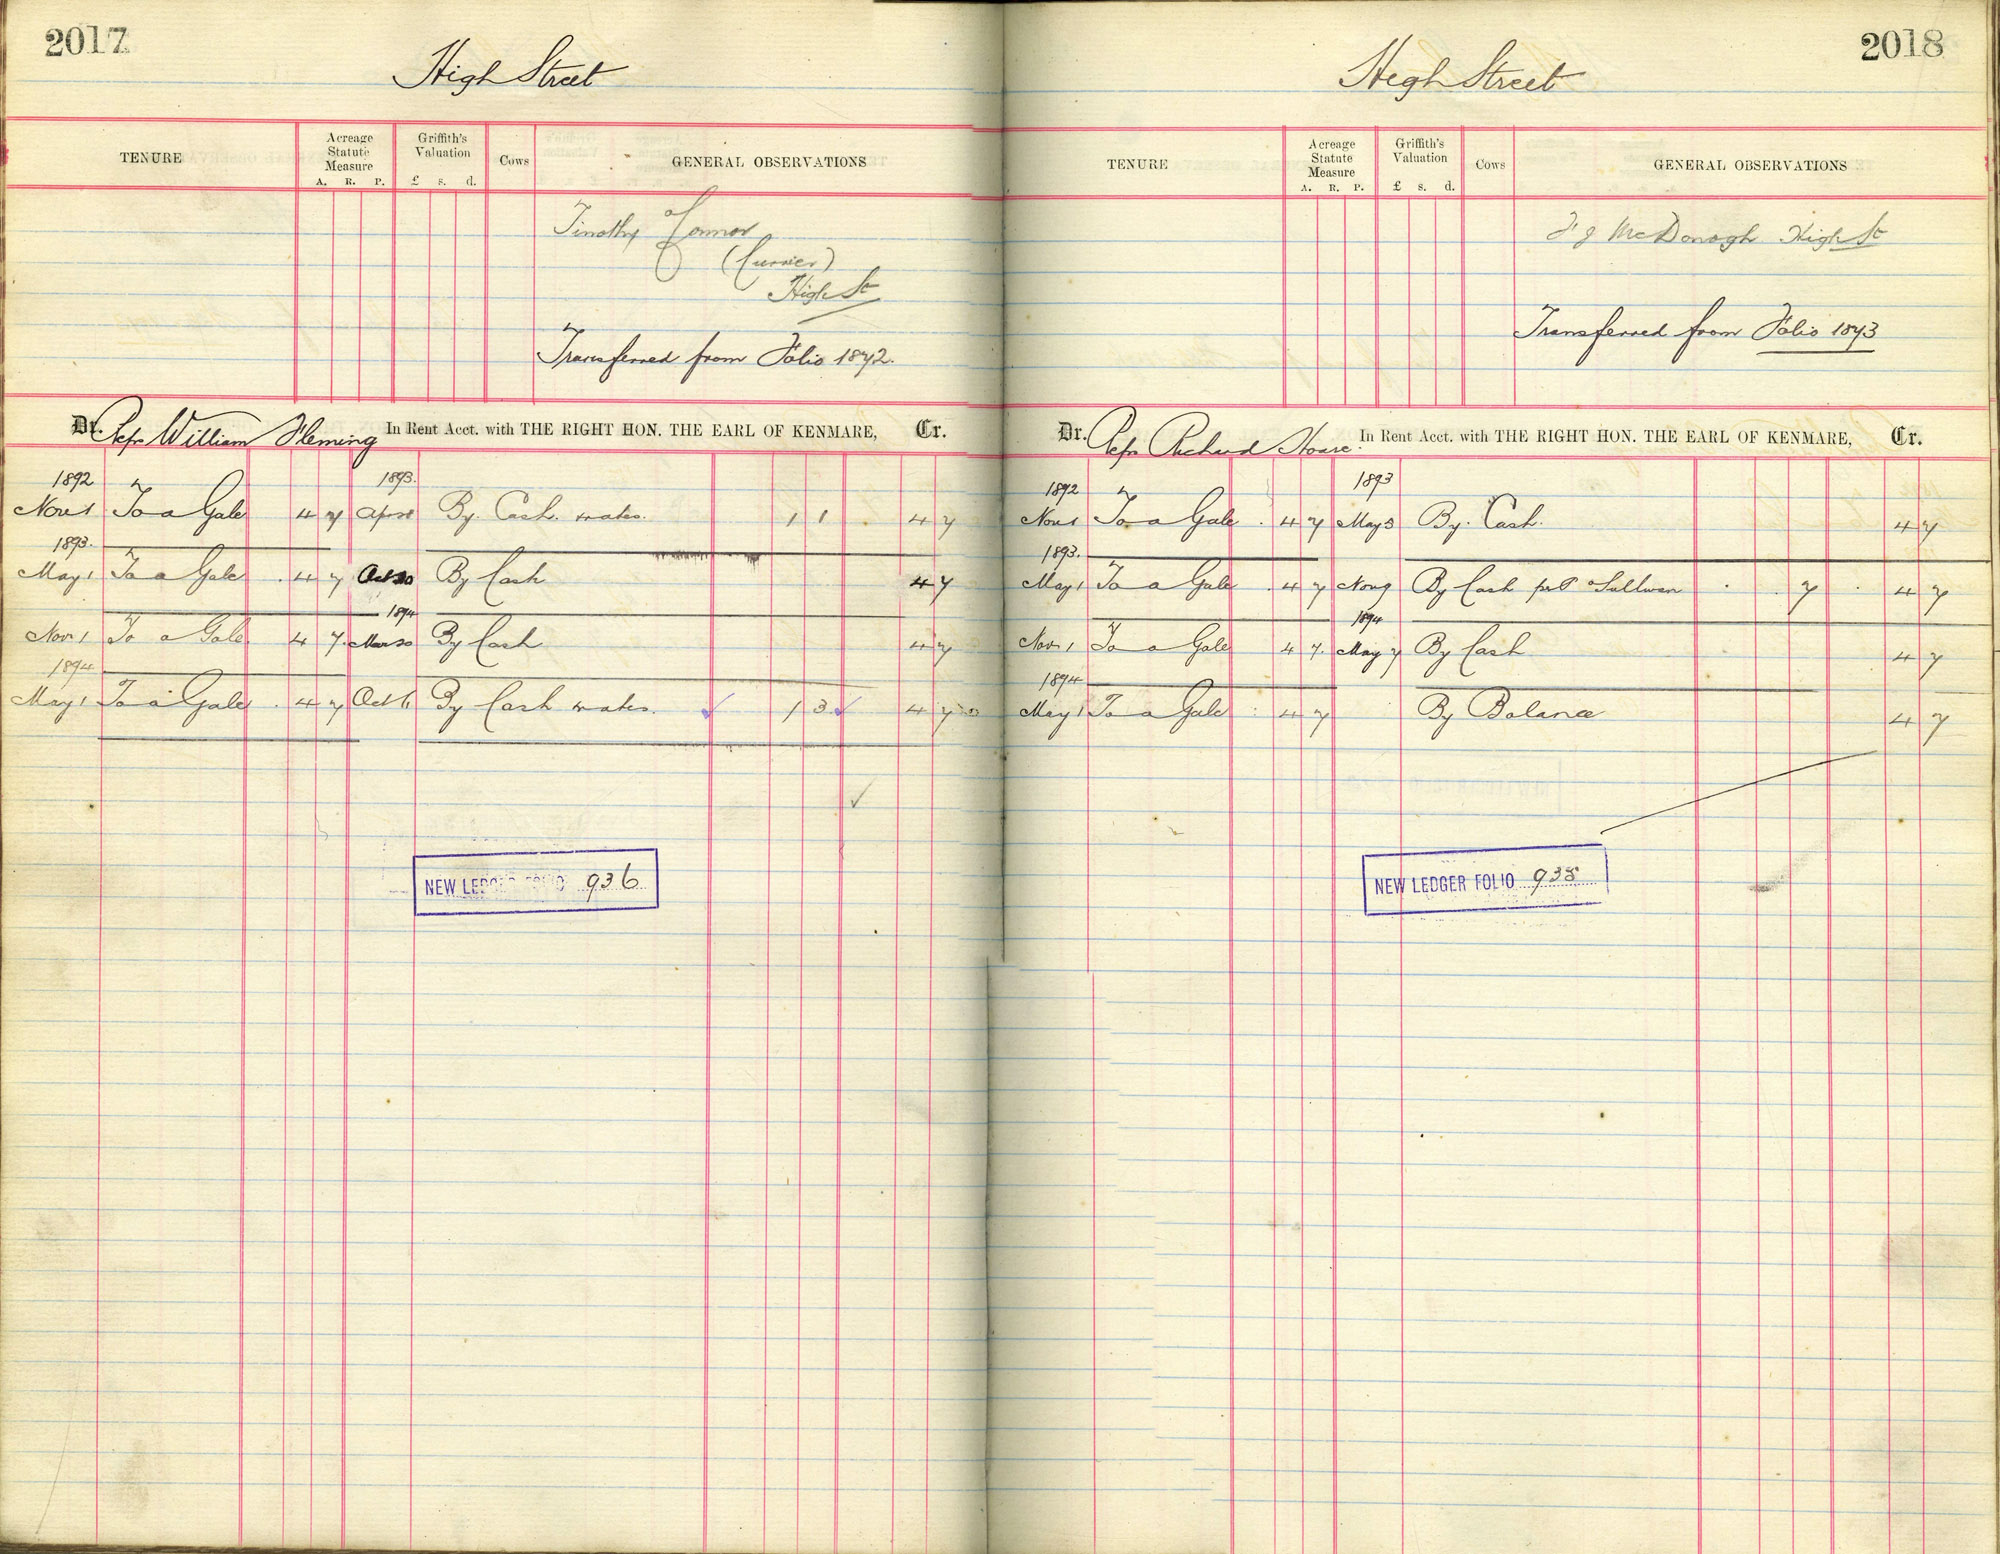 2017
High Street
TENURE
Acreage Statute Measure
A. R. P.
Griffith's Valuation
£ s. d.
Cows
GENERAL OBSERVATIONS
Timothy O'Connor
(Currier)
High St
Transferred from Folio 1872.
Dr. Reps William Fleming In Rent Acct. with THE RIGHT HON. THE EARL OF KENMARE, Cr.
1892 1893.
Nov 1 To a Gale 4 7 By Cash & rates. 1 1 4 7
1893.
May 1 To a Gale 4 7 Oct 20 By Cash 4 7
1894
Nov 1 To a Gale 4 7. Mar 30 By Cash 4 7
1894
May 1 To a Gale 4 7 Oct 6 By Cash & rates. 1 3 4 7
NEW LEDGER FOLIO 936
2018
High Street
TENURE
Acreage Statute Measure
A. R. P.
Griffith's Valuation
£ s. d.
Cows
GENERAL OBSERVATIONS
McDonogh High St
Transferred from Folio 1873
Dr. Reps Richard Hoare. In Rent Acct. with THE RIGHT HON. THE EARL OF KENMARE, Cr.
1892 1893
Nov 1 To a Gale 4 7 May 3 By Cash. 4 7
1893.
May 1 To a Gale 4 7 Nov 9 By Cash per P O'Sullivan 7 4 7
1894
Nov 1 To a Gale 4 7. May 7 By Cash 4 7
1894
May 1 To a Gale 4 7 By Balance 4 7
NEW LEDGER FOLIO 938